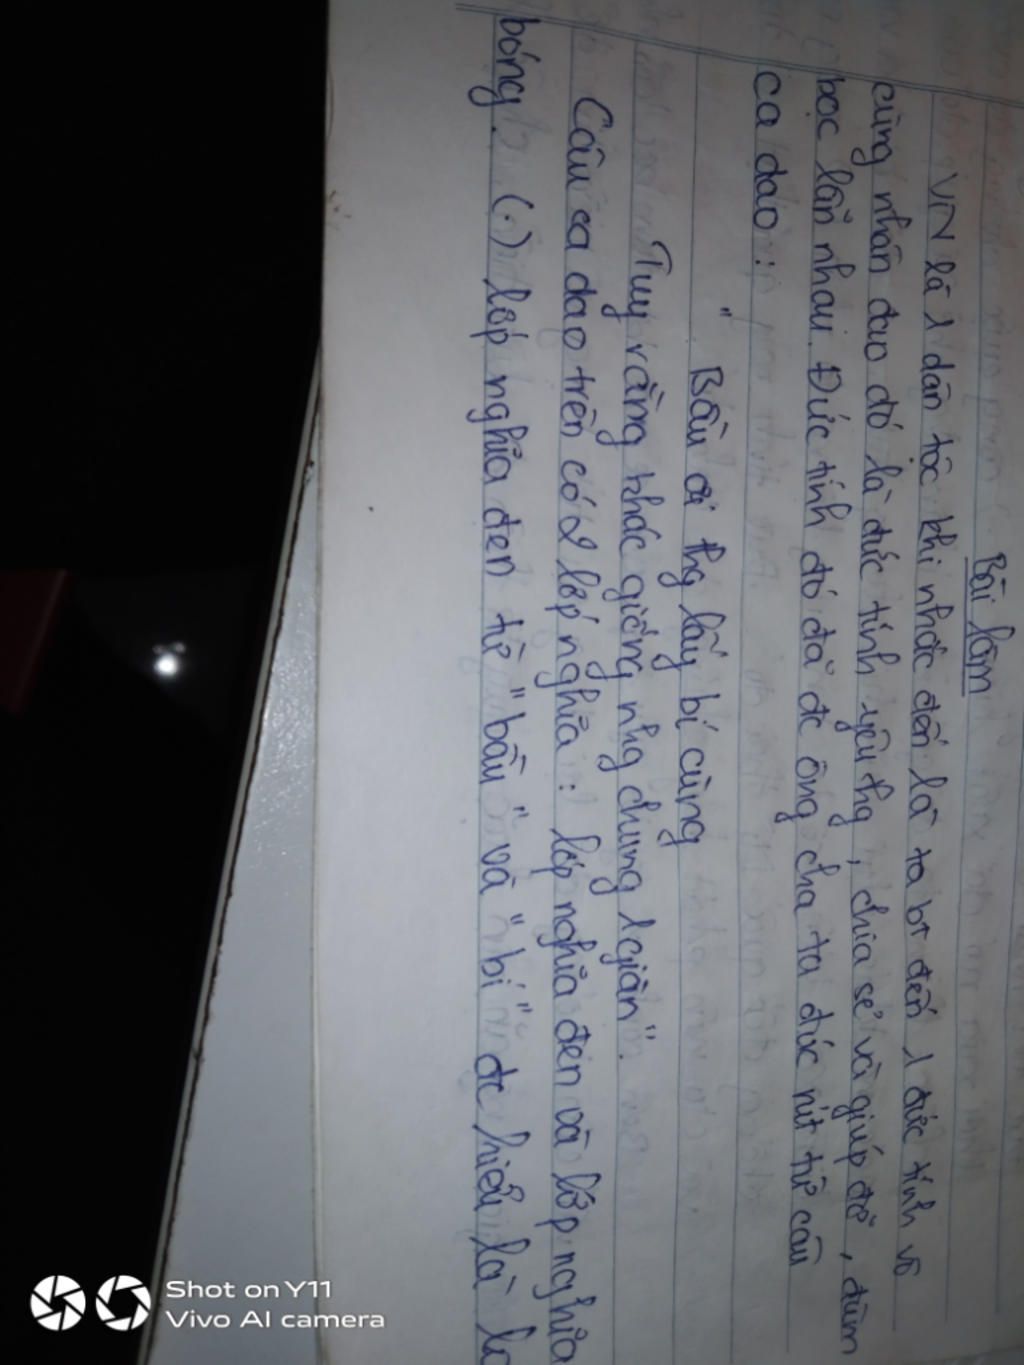 Bài làm
VN là 1 dân tộc khi nhắc đến là ta bt đến 1 đức tính vô
cùng nhân đạo đó là đức tính yêu thg, chia sẻ và giúp đỡ, đùm
bọc lẫn nhau. Đức tính đó đã đc ông cha ta đúc rút từ câu
ca dao:
" Bầu ơi thg lấy bí cùng
Tuy rằng khác giống nhg chung 1 giàn".
Câu ca dao trên có 2 lớp nghĩa: lớp nghĩa đen và lớp nghĩa
bóng. (.) lớp nghĩa đen từ "bầu" và "bí" đc hiểu là
Shot on Y11
Vivo AI camera